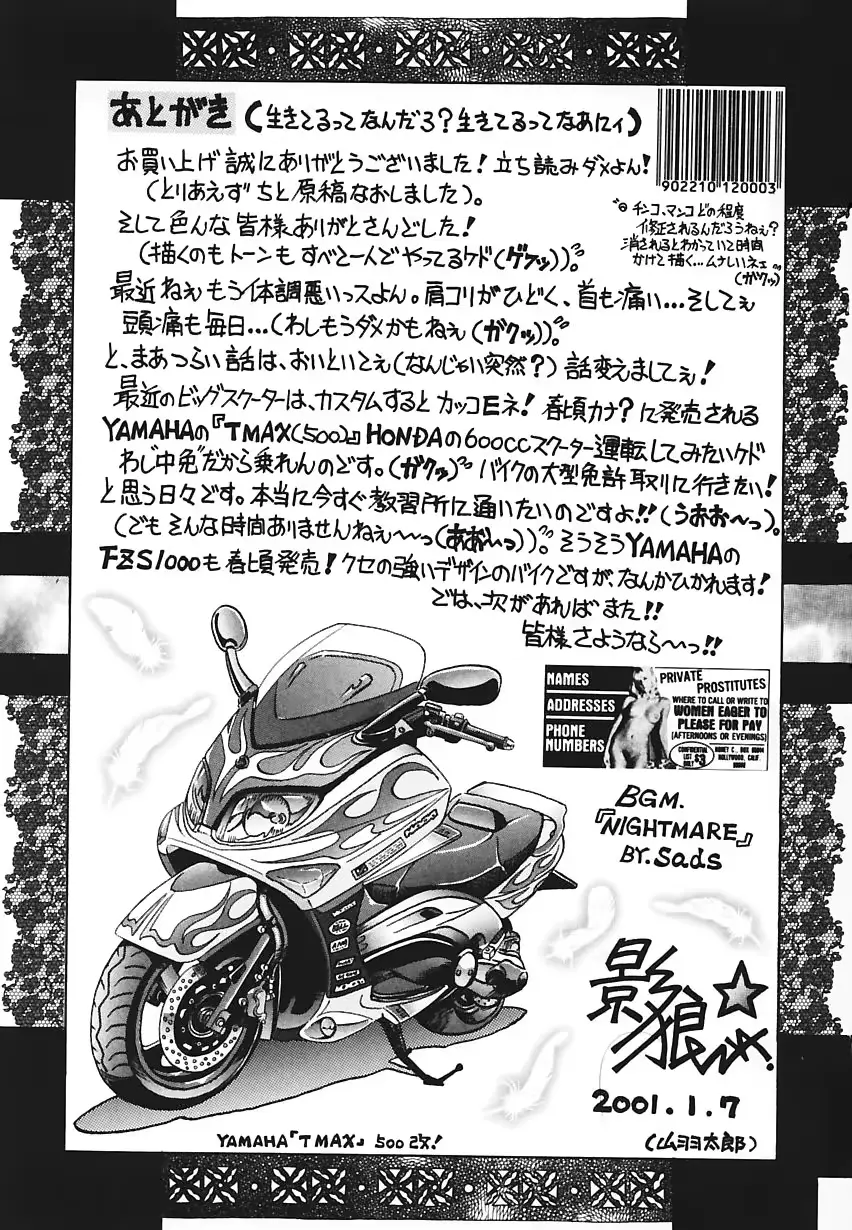 あとがき(生きてるってなんだろ?生きてるってなあにィ)
お買い上げ誠にありがとうございました!立ち読みダメよん!
(とりあえずちと原稿なおしました)。
そして色んな皆様ありがとさんどした!
(描くのもトーンもすべと一人でやってるケド(ゲフッ))。
902210 120003
チンコ、マンコどの程度
修正されるんだろうねぇ?
消されるとわかっていて時間
かけて描く…ムナしいネェ
(ガクッ)
最近ねぇもう体調悪いっスよん。肩コリがひどく、首も痛い…そしてぇ
頭痛も毎日…(わしもうダメかもねぇ(ガクッ))。
と、まあつらい話は、おいといてぇ(なんじゃい突然?)話変えましてぇ!
最近のビッグスクーターは、カスタムするとカッコEネ!春頃カナ?に発売される
YAMAHAの『TMAX(500)』HONDAの600CCスクーター運転してみたいケド
わし"中免"だから乗れんのです。(ガクッ)バイクの大型免許取りに行きたい!
と思う日々です。本当に今すぐ教習所に通いたいのですよ!!(うおお〜っ)。
(でもそんな時間ありませんねぇ〜〜っ(あお〜っ))。そうそうYAMAHAの
FZS1000も春頃発売!クセの強いデザインのバイクですが、なんかひかれます!
では、次があればまた!!
皆様さようなら〜っ!!
NAMES
ADDRESSES
PHONE
NUMBERS
PRIVATE
PROSTITUTES
WHERE TO CALL OR WRITE TO
WOMEN EAGER TO
PLEASE FOR PAY
(AFTERNOONS OR EVENINGS)
CONFIDENTIAL
LIST
ONLY $3
HONEY C., BOX
HOLLYWOOD, CALIF.
BGM.
『NIGHTMARE』
BY. Sads
影狼
2001.1.7
(山羽太郎)
YAMAHA『TMAX』500改!